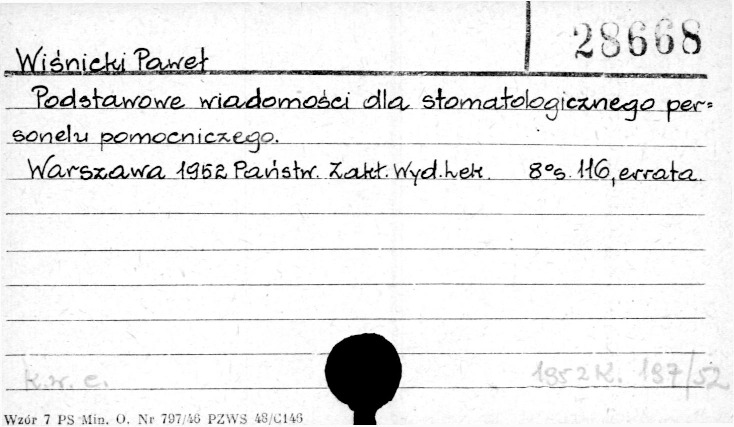 28668
Wiśnicki Paweł
Podstawowe wiadomości dla stomatologicznego per=
sonelu pomocniczego.
Warszawa 1952 Państw. Zakł. Wyd. Lek. 8° s. 116, errata.
k.w. e. 1952 K. 197/52
Wzór 7 PS Min. O. Nr 797/46 PZWS 48/C146